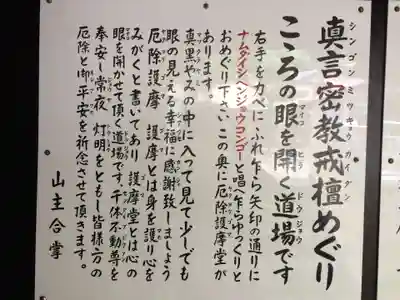 シンゴンミッキョウカイダン
真言密教戒檀めぐり
こころの眼を開く道場です
右手をカベにふれ乍ら矢印の通りに
ナムダイシヘンジョウコンゴーと唱え乍らゆっくりと
おめぐり下さい この奥に厄除護摩堂が
あります。
真黒やみの中に入って見て少しでも
眼の見える幸福に感謝致しましょう
厄除護摩 護摩とは身を護り心を
みがくと書いてあり 護摩堂とは心の
眼を開かせて頂く道場です、千体不動尊を
奉安し常夜 灯明をともし皆様方の
厄除と御平安を祈念させて頂きます。
山主合掌